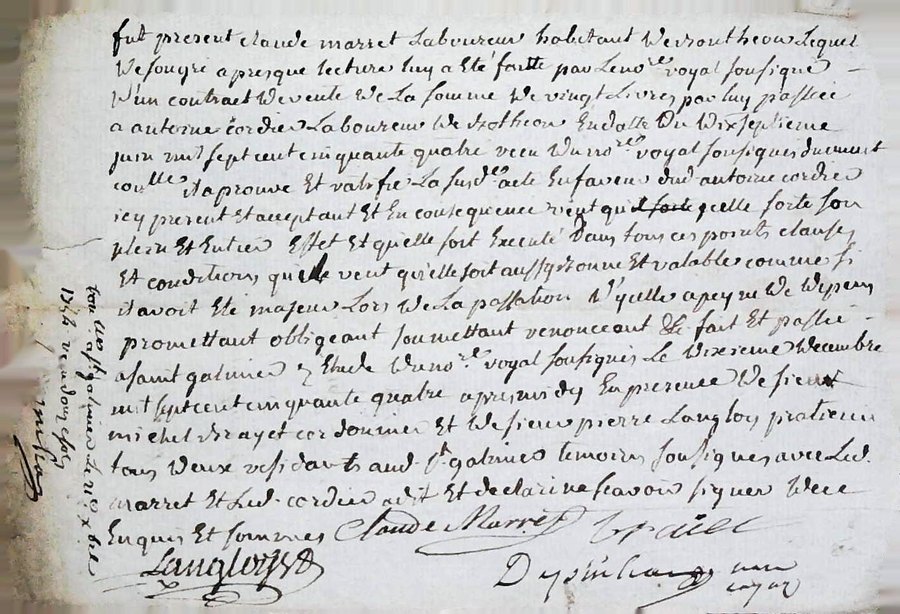 fut present claude marret Laboureur habitant de Lequel
de son gré apres que lecture luy a eté faitte par Le no.re royal sousigné
d'un contract de vente de La somme de vingt Livres par luy passée
a antoine cordier Laboureur de En datte du dixseptieme
juin mil sept cent cinquante quatre receu du no.re royal sousigné duement
con.lle il aprouve Et ratifie La susd.e acte En faveur dud. antoine cordier
icy present Et acceptant Et En consequence veut qu'il sorte y celle sorte son
plein Et Entier Effet Et quelle soit Executé dans tous ces points clauses
Et conditions quelle veut qu'elle soit aussy bonne Et valable comme si
il avoit Eté majeur Lors de La passation d'ycelle a peyne de depens
promettant obligeant soumettant renonceant &c fait Et passé
a saint galmier Etude du no.re royal sousigné Le dixieme decembre
mil sept cent cinquante quatre apres midy En presence de sieur
michel Brayet cordonnier Et de sieur pierre Langlois praticien
tous deux residants aud. St. galmier temoins sousignes avec Led.
marret Et Led. cordier a dit Et declaré ne scavoir signer de ce
Enquis Et sommés Claude Marret
Langloys
no.re
royal